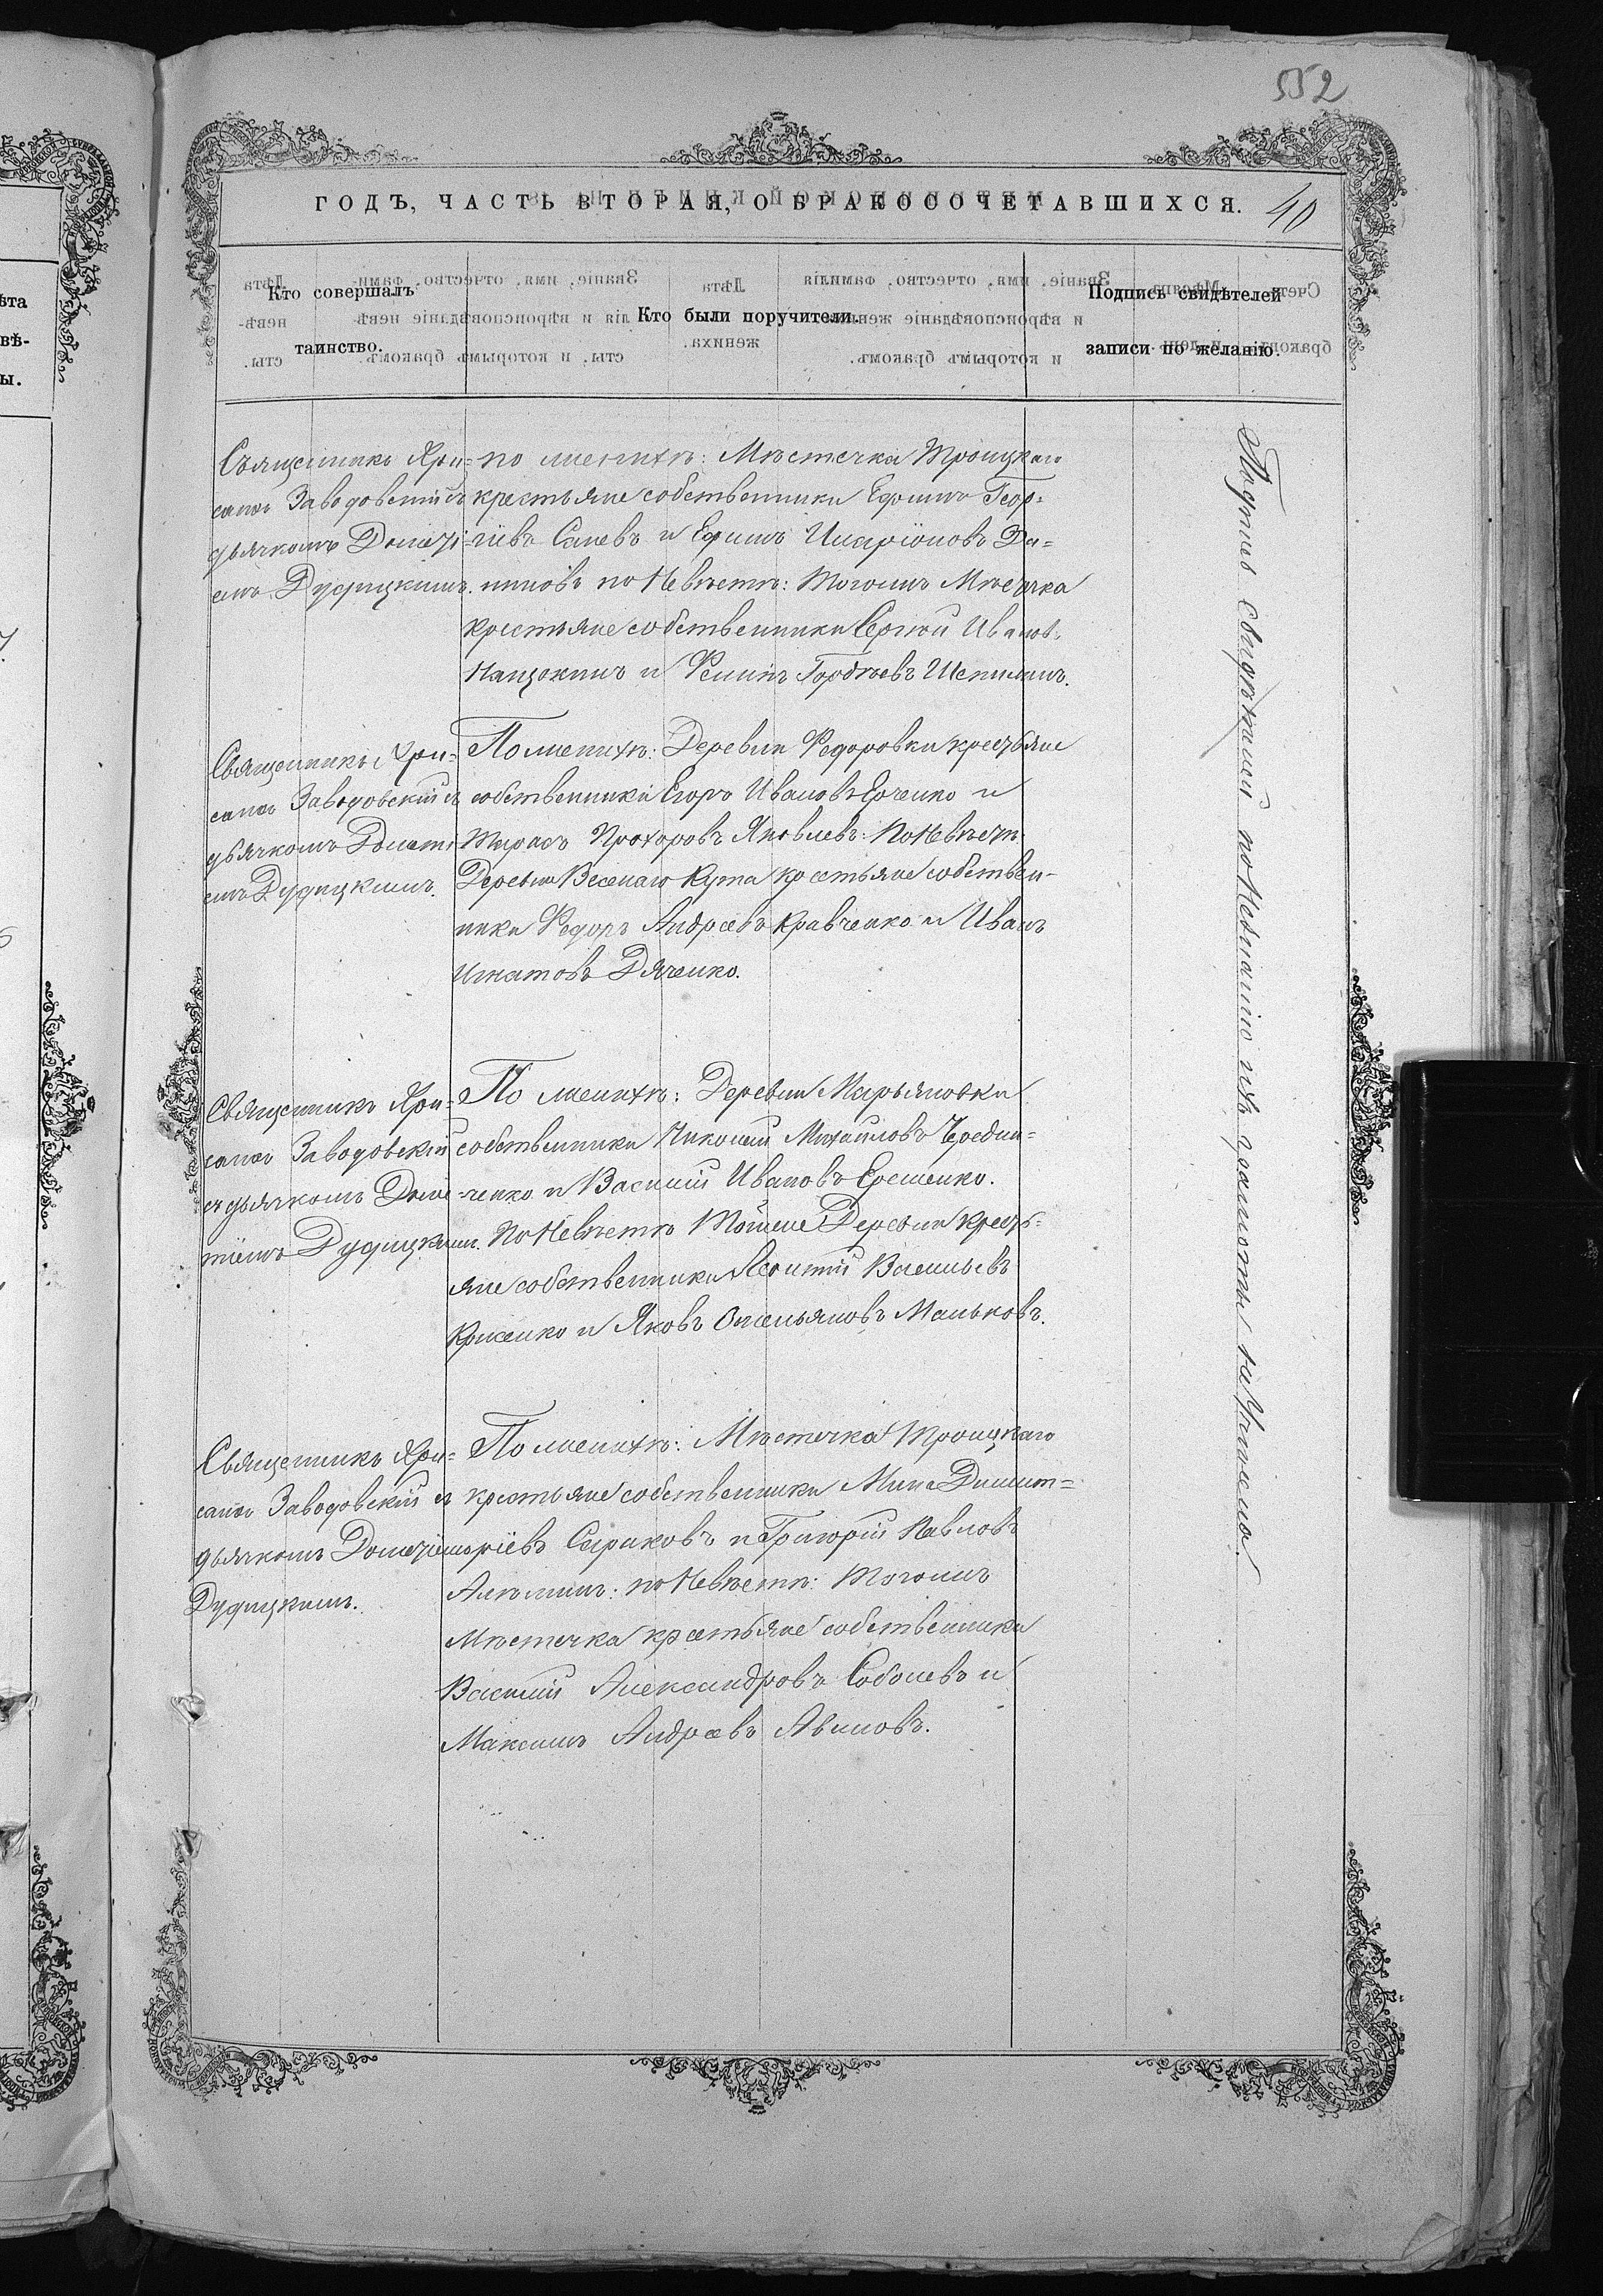 552
ГОДЪ, ЧАСТЬ ВТОРАЯ, О БРАКОСОЧЕТАВШИХСЯ.
40
Кто совершалъ
таинство.
Кто были поручители.
Подпись свидѣтелей
записи по желанію.
Священникъ Хри-
санѳъ Заводовскій съ
дьячкомъ Дометі-
емъ Дудицкимъ.
по женихѣ: Мѣстечка Троицкаго
крестьяне собственники Ефимъ Геор-
гіевъ и Ефимъ Иларіоновъ
по Невѣстѣ: тогожъ Мѣстечка
крестьяне собственники Сергѣй Ивановъ
Нащокинъ и Гордѣевъ
Священникъ Хри-
санѳъ Заводовскій съ
дьячкомъ Дометі
емъ Дудицкимъ.
По женихѣ: Деревни Федоровки крестьяне
собственники Егоръ Ивановъ и
Тарасъ Прохоровъ Яковлевъ: По Невѣстѣ
Деревни Веселаго Кута крестьяне собствен-
ники Федоръ Андреевъ Кравченко и Иванъ
Игнатовъ Дяченко.
Священникъ Хри-
санѳъ Заводовскій
съ дьячкомъ Доме-
тіемъ Дудицкимъ.
По женихѣ: Деревни Марьяновки
собственники Николай Михаиловъ Чередни-
ченко и Василій Ивановъ Еременко.
По Невѣстѣ Тойже Деревни крестъ-
яне собственники Леонтій Васильевъ
и Яковъ Омельяновъ Маньковъ.
Священникъ Хри-
санѳъ Заводовскій съ
дьячкомъ Дометіемъ
Дудицкимъ.
По женихѣ: Мѣстечка Троицкаго
крестьяне собственники Мина Димит-
ріевъ и Григорій Павловъ
по Невѣстѣ: тогожъ
Мѣстечка крестьяне собственники
Василій Александровъ Соболевъ и
Максимъ Андреевъ
Подпись свидѣтелей по Незнанію ихъ грамоты